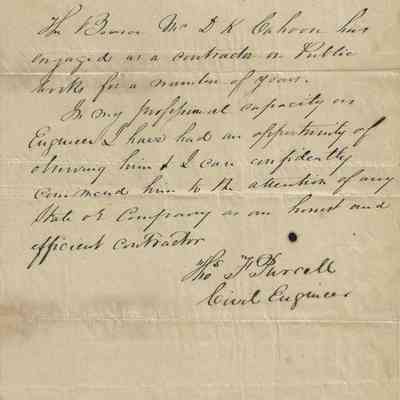 The Bearer Mr D K Cahoon has
engaged as a contractor on Public
Works for a number of years.
In my professional capacity as
Engineer I have had an opportunity of
observing him & I can confidently
commend him to the attention of any
State or Company as an honest and
efficient contractor
Thos F Purcell
Civil Engineer